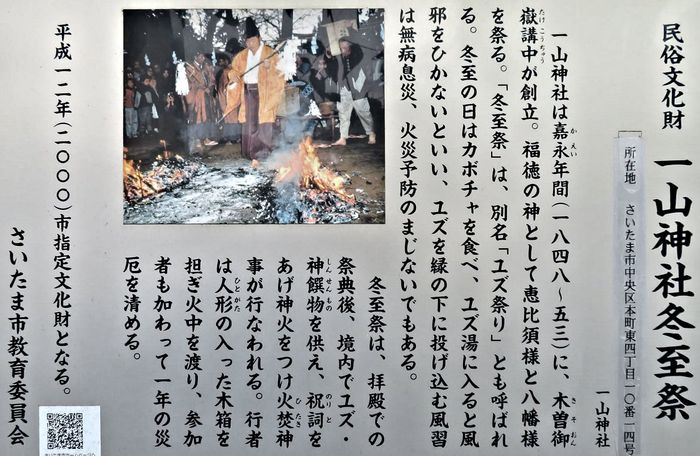 民俗文化財
一山神社冬至祭
所在地 さいたま市中央区本町東四丁目一〇番一四号
一山神社
一山神社は嘉永年間(一八四八~五三)に、木曽御
かえい
きそおん
嶽講中が創立。福徳の神として恵比須様と八幡様
たけこうちゅう
を祭る。「冬至祭」は、別名「ユズ祭り」とも呼ばれ
る。冬至の日はカボチャを食べ、ユズ湯に入ると風
邪をひかないといい、ユズを縁の下に投げ込む風習
は無病息災、火災予防のまじないでもある。
冬至祭は、拝殿での
祭典後、境内でユズ・
神饌物を供え、祝詞を
しんせんもの
のりと
あげ神火をつけ火焚神
ひたき
事が行なわれる。行者
は人形の入った木箱を
ひとがた
担ぎ火中を渡り、参加
者も加わって一年の災
厄を清める。
平成一二年(二〇〇〇)市指定文化財となる。
さいたま市教育委員会